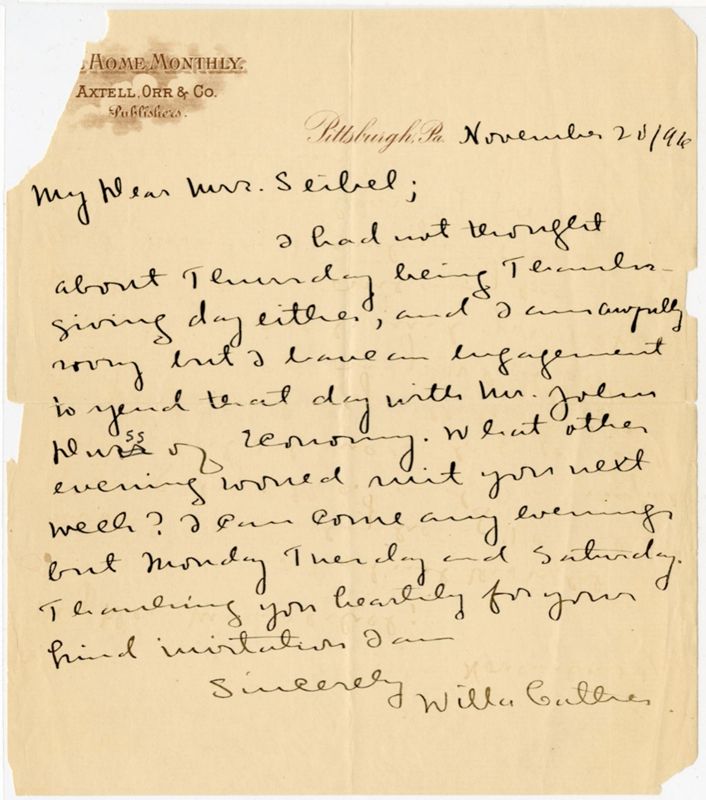 HOME MONTHLY.
AXTELL, ORR & CO.
Publishers.
Pittsburgh, Pa. November 25/96
My Dear Mrs. Seibel;
I had not thought
about Thursday being Thanks-
giving day either, and I am awfully
sorry but I have an engagement
to spend that day with Mr. John
Duss of Economy. What other
evening would suit you next
week? I can come any evening
but Monday Tuesday and Saturday.
Thanking you heartily for your
kind invitation I am
Sincerely
Willa Cather